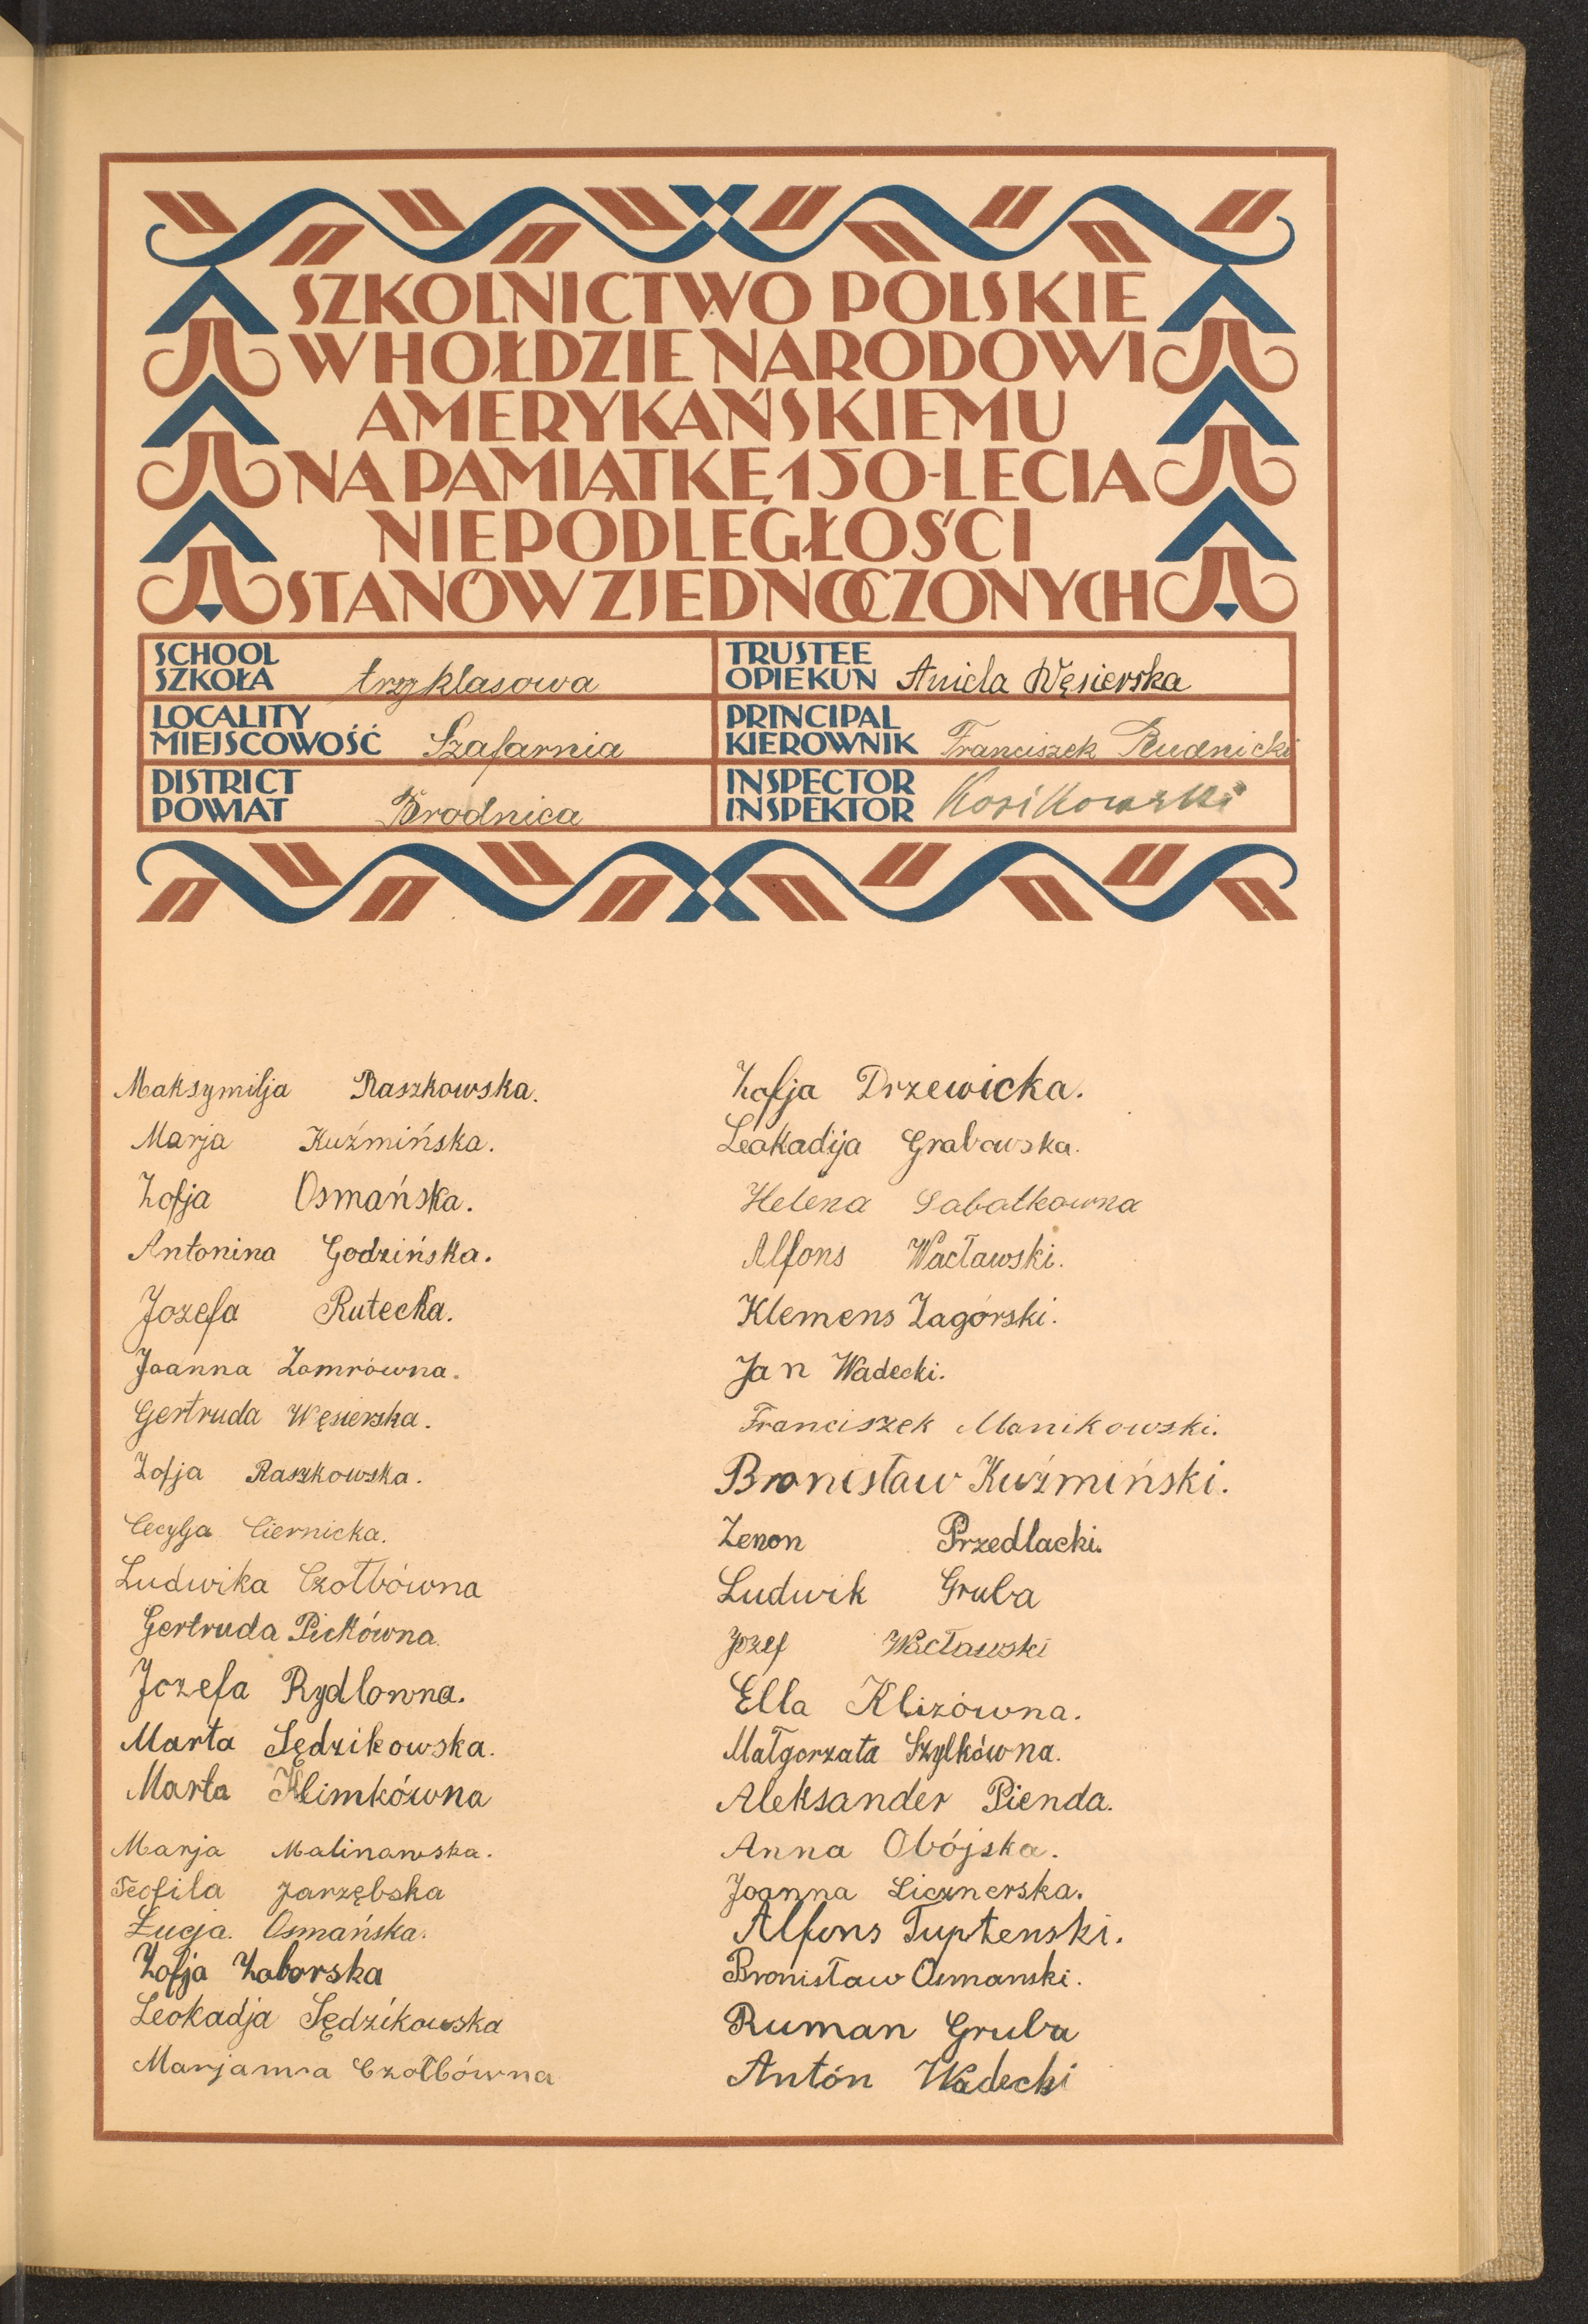 SZKOLNICTWO POLSKIE
W HOŁDZIE NARODOWI
AMERYKAŃSKIEMU
NA PAMIĄTKĘ 150-LECIA
NIEPODLEGŁOŚCI
STANÓW ZJEDNOCZONYCH
SCHOOL
SZKOŁA trzyklasowa
TRUSTEE
OPIEKUN Aniela Węsierska
LOCALITY
MIEJSCOWOŚĆ Szafarnia
PRINCIPAL
KIEROWNIK Franciszek Rudnicki
DISTRICT
POWIAT Brodnica
INSPECTOR
INSPEKTOR Kosikowski
Maksymilja Raszkowska.
Marja Kuźmińska.
Zofja Osmańska.
Antonina Godzińska.
Jozefa Rutecka.
Joanna Zomrówna.
Gertruda Węsierska.
Zofja Raszkowska.
Cecylja Ciernicka.
Ludwika Czołbówna
Gertruda Pickówna.
Jozefa Rydlowna.
Marta Sędzikowska.
Marta Klimkówna
Marja Malinowska.
Teofila Jarzębska
Łucja. Osmańska.
Zofja Zaborska
Leokadja Sędzikowska
Marjanna Czołbówna
Zofja Drzewicka.
Leokadija Grabowska.
Helena Sabatkowna
Alfons Wacławski.
Klemens Zagórski.
Jan Wadecki.
Franciszek Manikowski.
Bronisław Kuźmiński.
Zenon Przedlacki.
Ludwik Gruba
Jozef Wacławski
Ella Klizówna.
Małgorzata Szylkówna.
Aleksander Pienda.
Anna Obójska.
Joanna Licznerska.
Alfons Tuptenski.
Bronisław Osmanski.
Ruman Gruba
Antón Wadecki